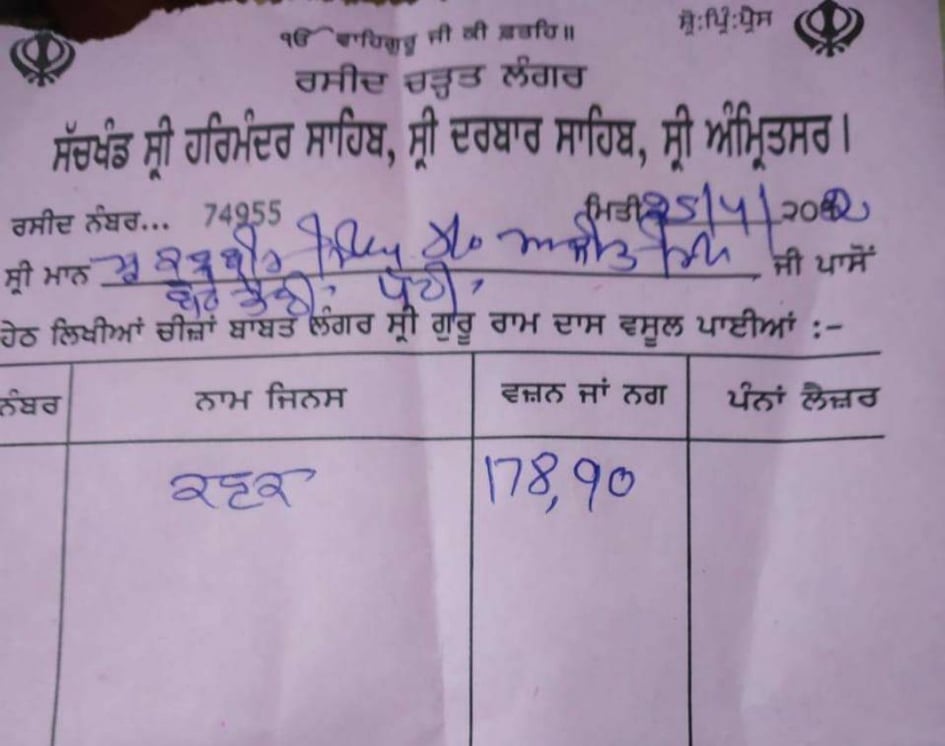 ੴ ਵਾਹਿਗੁਰੂ ਜੀ ਕੀ ਫ਼ਤਹਿ॥
ਸ਼੍ਰੋ:ਪ੍ਰਿੰ:ਪ੍ਰੈਸ
ਰਸੀਦ ਚੜ੍ਹਤ ਲੰਗਰ
ਸੱਚਖੰਡ ਸ੍ਰੀ ਹਰਿਮੰਦਰ ਸਾਹਿਬ, ਸ੍ਰੀ ਦਰਬਾਰ ਸਾਹਿਬ, ਸ੍ਰੀ ਅੰਮ੍ਰਿਤਸਰ।
ਰਸੀਦ ਨੰਬਰ... 74955 ਮਿਤੀ
ਸ੍ਰੀ ਮਾਨ ਸਿੰਘ ਜੀ ਪਾਸੋਂ
ਹੇਠ ਲਿਖੀਆਂ ਚੀਜ਼ਾਂ ਬਾਬਤ ਲੰਗਰ ਸ੍ਰੀ ਗੁਰੂ ਰਾਮ ਦਾਸ ਵਸੂਲ ਪਾਈਆਂ :-
ਨੰਬਰ ਨਾਮ ਜਿਨਸ ਵਜ਼ਨ ਜਾਂ ਨਗ ਪੰਨਾਂ ਲੈਜ਼ਰ
ਕਣਕ 178,90